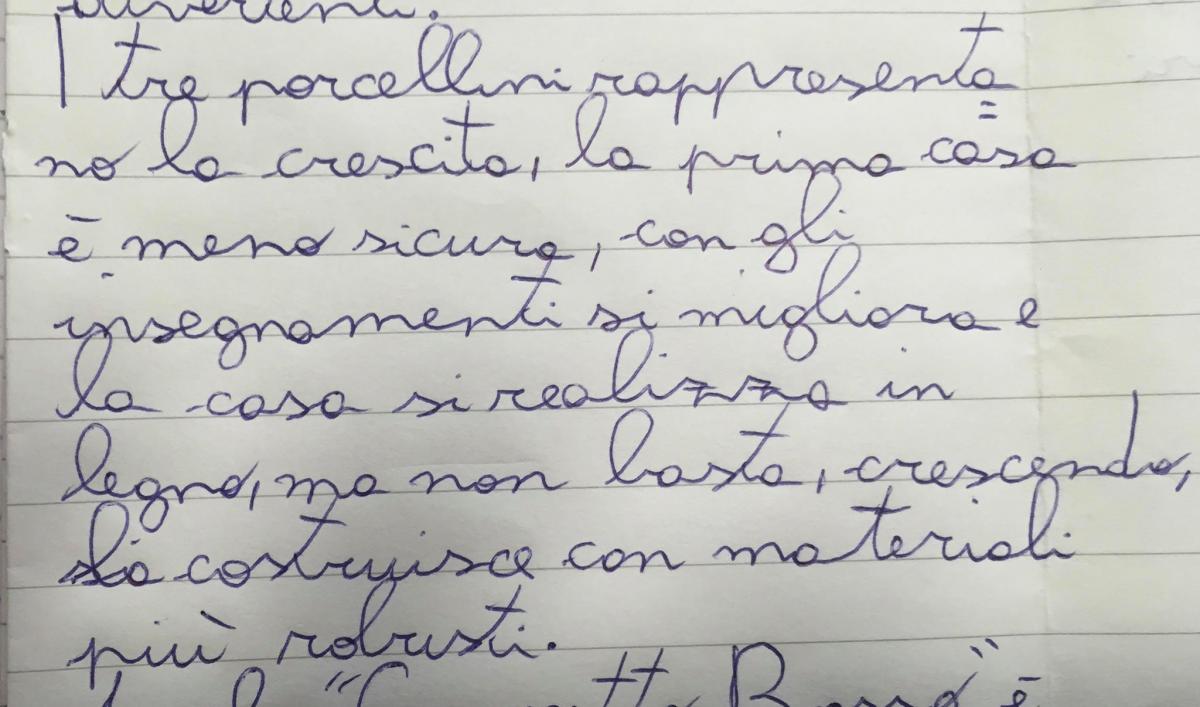 divertenti.
I tre porcellini rappresenta=
no la crescita, la prima casa
è meno sicura, con gli
insegnamenti si migliora e
la casa si realizza in
legno, ma non basta, crescendo,
si costruisce con materiali
più robusti.
"Cappuccetto Rosso" è